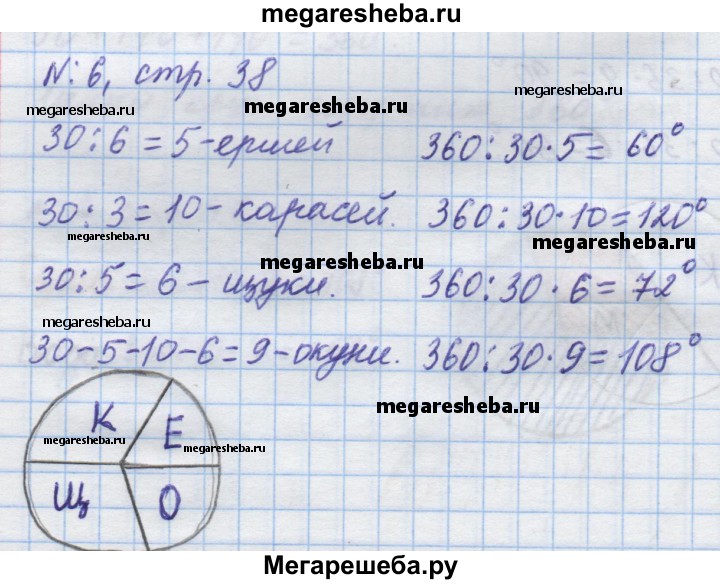 megaresheba.ru
№ 6, стр. 38
megaresheba.ru megaresheba.ru megaresheba.ru
30:6=5-ершей 360:30·5= 60°
30:3=10-карасей. 360:30·10=120°
megaresheba.ru megaresheba.ru
megaresheba.ru
30:5=6-щуки. 360:30·6=72°
megaresheba.ru
30-5-10-6=9-окуни. 360:30·9=108°
megaresheba.ru
К Е
megaresheba.ru megaresheba.ru
Щ О
Мегарешеба.ру